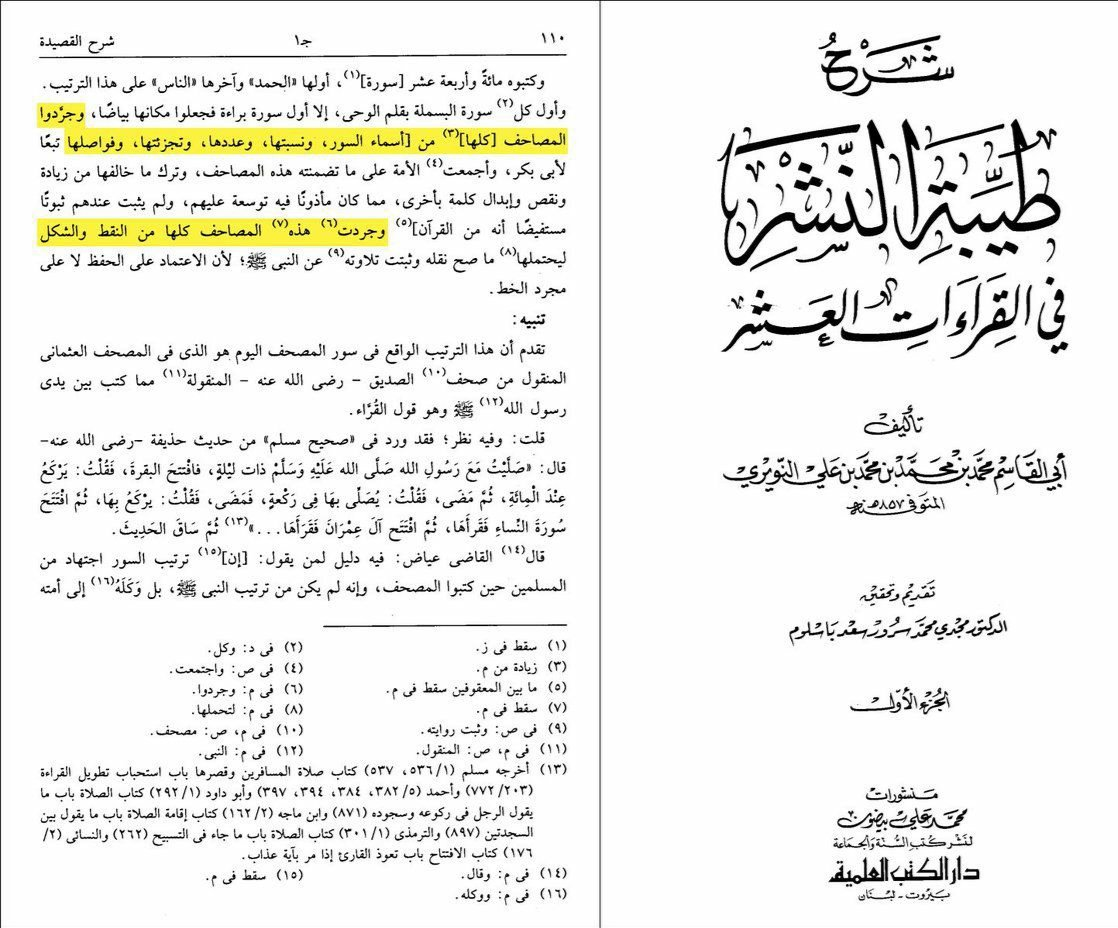 شرح
طَيِّبَةِ النَّشْرِ
في القِرَاءَاتِ العَشْرِ
تأليف
أبي القاسم محمد بن محمد بن محمد بن علي النويري
المتوفى ٨٥٧ هـ
تقديم وتحقيق
الدكتور مجدي محمد سرور سعد باسلوم
الجزء الأول
منشورات
محمد علي بيضون
لنشر كتب السنة والجماعة
دار الكتب العلمية
بيروت - لبنان
١١٠ جـ١ شرح القصيدة
وكتبوه مائةً وأربعة عشر [سورة](١)، أولها «الحمد» وآخرها «الناس» على هذا الترتيب.
وأول كل(٢) سورة البسملة بقلم الوحى، إلا أول سورة براءة فجعلوا مكانها بياضًا، وجرَّدوا
المصاحف [كلها](٣) من [أسماء السور، ونسبتها، وعددها، وتجزئتها، وفواصلها تبعًا
لأبى بكر، وأجمعت(٤) الأمة على ما تضمنته هذه المصاحف، وترك ما خالفها من زيادة
ونقص وإبدال كلمة بأخرى، مما كان مأذونًا فيه توسعة عليهم، ولم يثبت عندهم ثبوتًا
مستفيضًا أنه من القرآن](٥) وجردت(٦) هذه(٧) المصاحف كلها من النقط والشكل
ليحتملها(٨) ما صح نقله وثبتت تلاوته(٩) عن النبى ﷺ؛ لأن الاعتماد على الحفظ لا على
مجرد الخط.
تنبيه:
تقدم أن هذا الترتيب الواقع فى سور المصحف اليوم هو الذى فى المصحف العثمانى
المنقول من صحف(١٠) الصديق - رضى الله عنه - المنقولة(١١) مما كتب بين يدى
رسول الله(١٢) ﷺ وهو قول القُرَّاء.
قلت: وفيه نظر؛ فقد ورد فى «صحيح مسلم» من حديث حذيفة -رضى الله عنه-
قال: «صَلَّيْتُ مَعَ رَسُولِ الله صَلَّى الله عَلَيْهِ وَسَلَّمَ ذات ليْلةٍ، فافْتتحَ البقرةَ، فَقُلْتُ: يَرْكَعُ
عِنْدَ الْمِائَةِ، ثُمَّ مَضَى، فَقُلْتُ: يُصَلِّى بهَا فِى رَكْعةٍ، فَمَضَى، فَقُلْتُ: يَرْكَعُ بِهَا، ثُمَّ افْتَتَحَ
سُورَةَ النِّساءِ فَقَرَأَهَا، ثُمَّ افْتَتَحَ آلَ عِمْرَانَ فَقَرَأَهَا...»(١٣) ثُمَّ سَاقَ الحَدِيثَ.
قال(١٤) القاضى عياض: فيه دليل لمن يقول: [إن](١٥) ترتيب السور اجتهاد من
المسلمين حين كتبوا المصحف، وإنه لم يكن من ترتيب النبى ﷺ، بل وَكَلَهُ(١٦) إلى أمته
(١) سقط فى ز. (٢) فى د: وكل.
(٣) زيادة من م. (٤) فى ص: واجتمعت.
(٥) ما بين المعقوفين سقط فى م. (٦) فى م: وجردوا.
(٧) سقط فى م. (٨) فى م: لتحملها.
(٩) فى ص: وثبت روايته. (١٠) فى م، ص: مصحف.
(١١) فى م، ص: المنقول. (١٢) فى م: النبى.
(١٣) أخرجه مسلم (١/ ٥٣٦، ٥٣٧) كتاب صلاة المسافرين وقصرها باب استحباب تطويل القراءة
(٢٠٣/ ٧٧٢) وأحمد (٥/ ٣٨٢، ٣٨٤، ٣٩٤، ٣٩٧) وأبو داود (١/ ٢٩٢) كتاب الصلاة باب ما
يقول الرجل فى ركوعه وسجوده (٨٧١) وابن ماجه (٢/ ١٦٢) كتاب إقامة الصلاة باب ما يقول بين
السجدتين (٨٩٧) والترمذى (١/ ٣٠١) كتاب الصلاة باب ما جاء فى التسبيح (٢٦٢) والنسائى (٢/
١٧٦) كتاب الافتتاح باب تعوذ القارئ إذا مر بآية عذاب.
(١٤) فى م: وقال. (١٥) سقط فى م.
(١٦) فى م: ووكله.